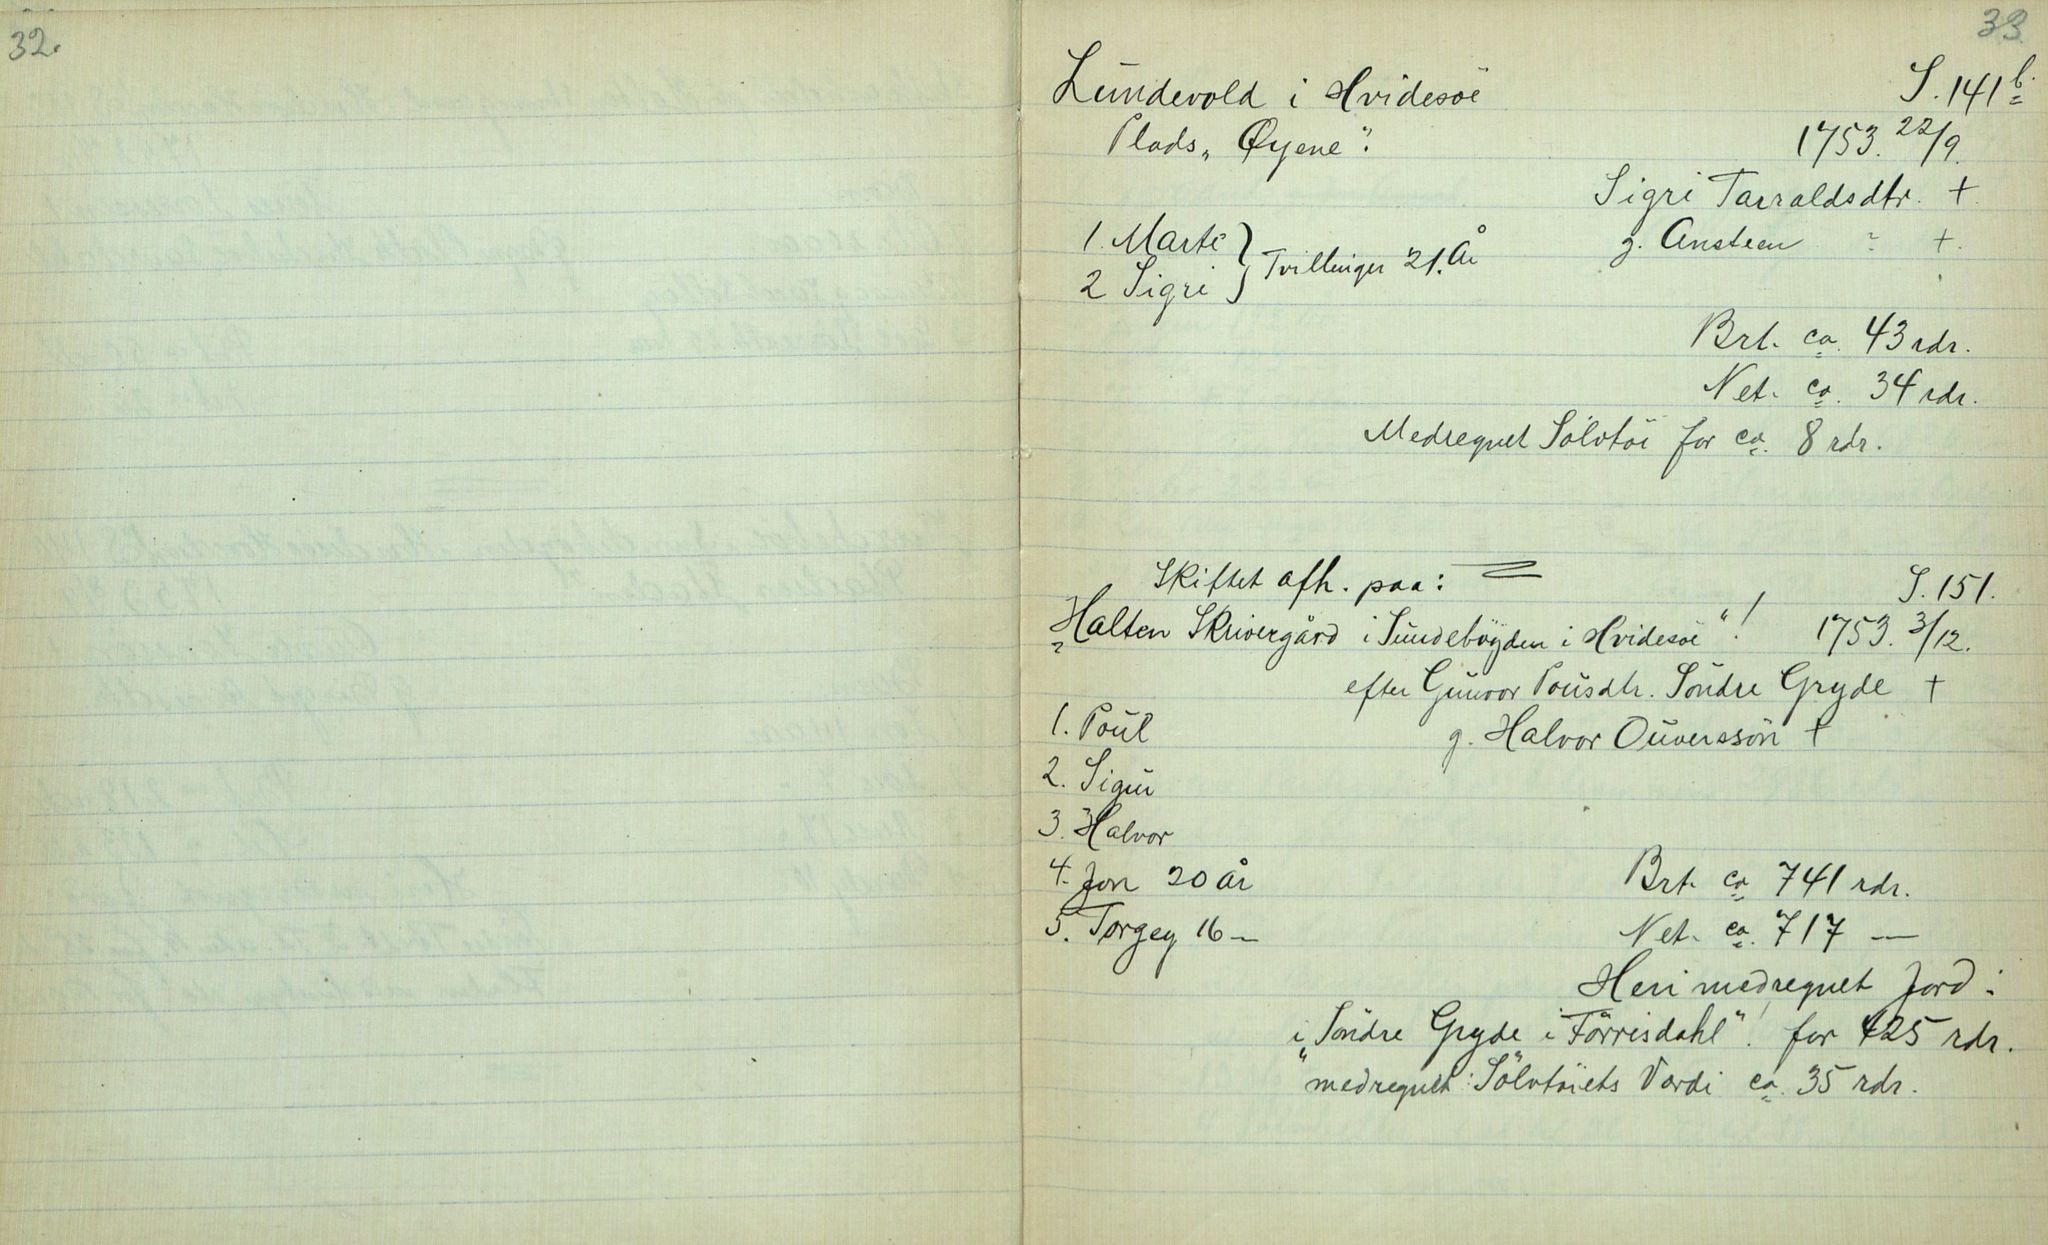 32.
33
Lundevold i Hvidesöe S. 141 b.
Plads „Øyene". 1753. 22/9.
Sigri Tarraldsdtr. +.
1. Marte g. Ansteen ? +.
2 Sigri } Tvillinger 21. År
Brt. ca. 43 rdr.
Net. ca. 34 rdr.
Medregnet Sölvtöi for ca. 8 rdr.
Skiftet afh. paa: S. 151.
„Halten Skrivergård i Sundebögden i Hvidesöe"! 1753. 3/12.
efter Gunvor Pousdtr. Söndre Gryde +
1. Poul g. Halvor Ouversson +
2. Sigur
3. Halvor
4. Jon 20 år Brt. ca 741 rdr.
5. Torgey 16 — Net. ca. 717 —
Heri medregnet Jord:
i „Söndre Gryde i Förrisdahl"! for 425 rdr.
medregnet: Sölvtöiets Værdi ca. 35 rdr.